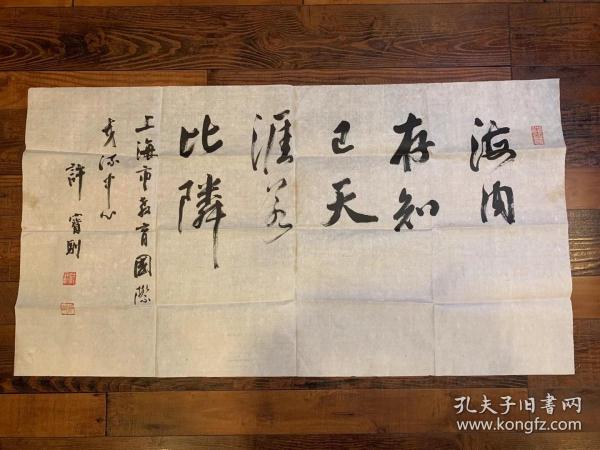 海内
存知
己天
涯若
比隣
上海市教育國際
交流中心
許寶
孔夫子旧书网
www.kongfz.com